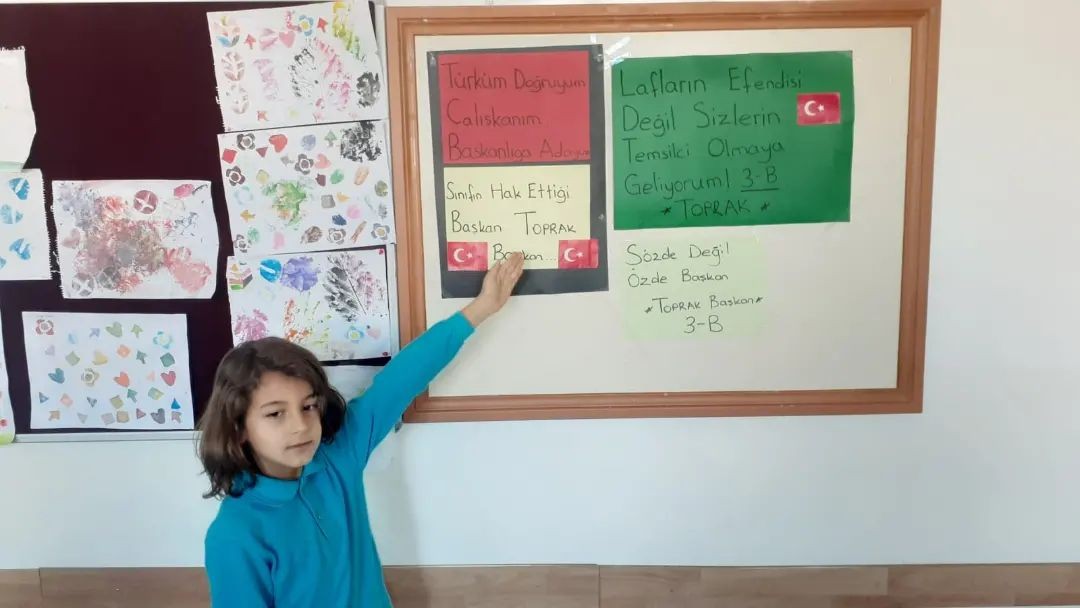 Türküm Doğruyum
Çalışkanım
Başkanlığa Adayım
Sınıfın Hak Ettiği
Başkan TOPRAK
Başkan...
Lafların Efendisi
Değil Sizlerin
Temsilci Olmaya
Geliyorum! 3-B
* TOPRAK *
Sözde Değil
Özde Başkan
*TOPRAK Başkan*
3-B